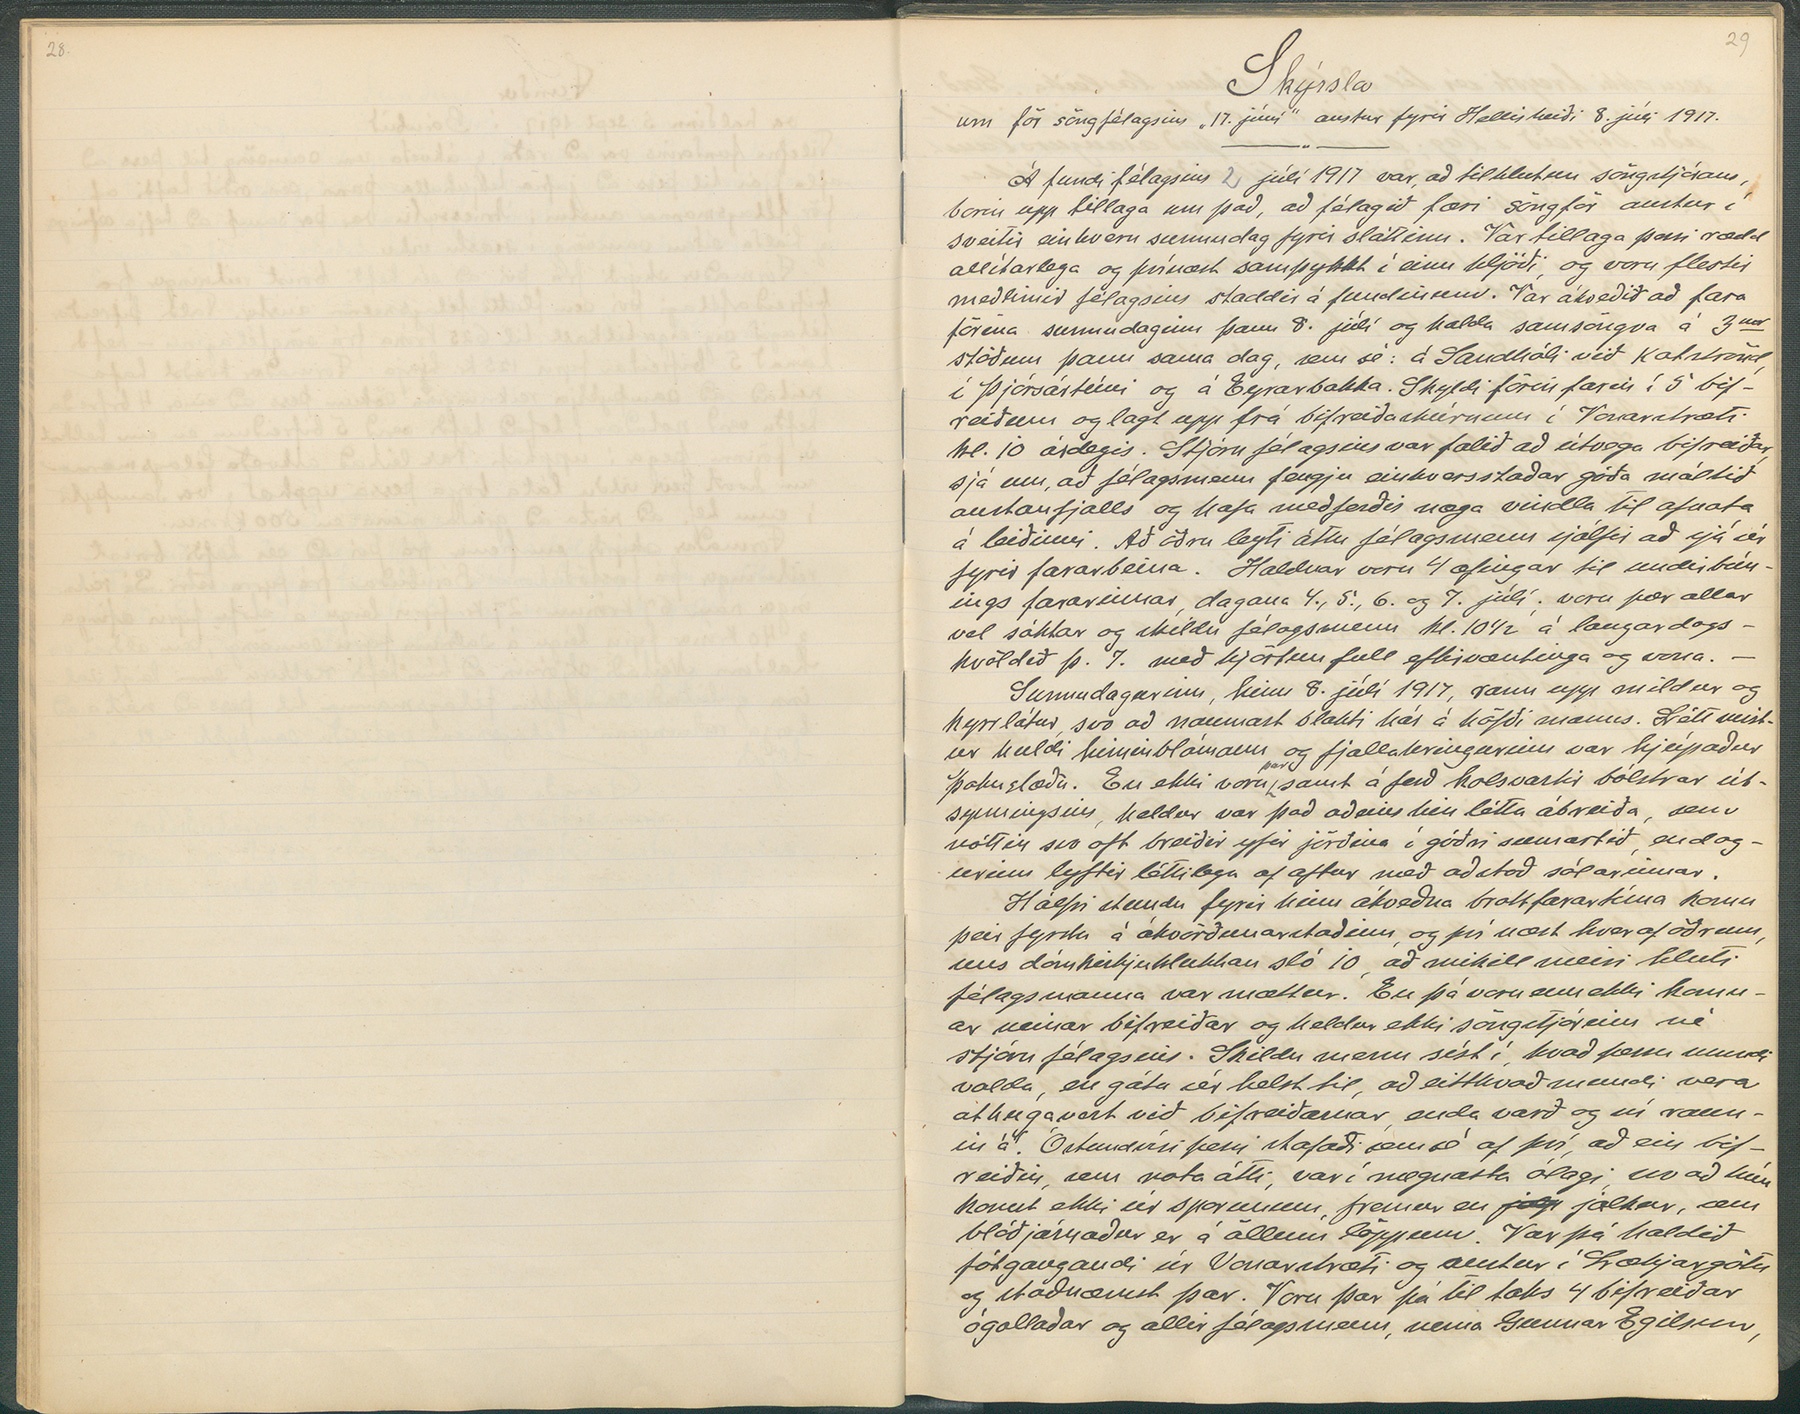 28.
29
Skýrsla
um för söngfélagsins „17. júní" austur fyrir Hellisheiði 8. júlí 1917.
Á fundi félagsins 2. júlí 1917 var, að tilhlutun söngstjórans,
borin upp tillaga um það, að félagið færi söngför austur í
sveitir einhvern sunnudag fyrir sláttinn. Var tillaga þessi rædd
allítarlega og þvínæst samþykkt í einu hljóði, og voru flestir
meðlimir félagsins staddir á fundinum. Var ákveðið að fara
förina sunnudaginn þann 8. júlí og halda samsöngva á 3ur
stöðum þann sama dag, sem sé: á Sandhóli við Kotströnd,
í Þjórsártúni og á Eyrarbakka. Skyldi förin farin í 5 bif-
reiðum og lagt upp frá bifreiðaskúrnum í Vonarstræti
kl. 10 árdegis. Stjórn félagsins var falið að útvega bifreiðar,
sjá um, að félagsmenn fengju einhversstaðar góða máltíð
austanfjalls og hafa meðferðis næga vindla til afnota
á leiðinni. Að öðru leyti áttu félagsmenn sjálfir að sjá sér
fyrir fararbeina. Haldnar voru 4 æfingar til undirbún-
ings fararinnar, dagana 4., 5., 6. og 7. júlí; voru þær allar
vel sóktar og skildu félagsmenn kl. 10½ á laugardags-
kvöldið þ. 7. með hjörtun full eftirvæntinga og vona. —
Sunnudagurinn, hinn 8. júlí 1917, rann upp mildur og
kyrrlátur, svo að naumast blakti hár á höfði manns. Létt mist-
ur huldi himinblámann og fjallahringurinn var hjúpaður
þokuslæðu. En ekki voru þar samt á ferð kolsvartir bólstrar út-
synningsins, heldur var það aðeins hin létta ábreiða, sem
nóttin svo oft breiðir yfir jörðina í góðri sumartíð, en dag-
urinn lyftir léttilega af aftur með aðstoð sólarinnar.
Hálfri stundu fyrir hinn ákveðna brottfarartíma komu
þeir fyrstu á ákvörðunarstaðinn, og því næst hver af öðrum,
uns dómkirkjuklukkan sló 10, að mikill meiri hluti
félagsmanna var mættur. En þá voru enn ekki komn-
ar neinar bifreiðar og heldur ekki söngstjórinn né
stjórn félagsins. Skildu menn síst í, hvað þessu mundi
valda, en gátu sér helst til, að eitthvað mundi vera
athugavert við bifreiðarnar, enda varð og sú raun-
in á. Óstundvísi þessi stafaði sem sé af því, að ein bif-
reiðin, sem nota átti, var í megnasta ólagi, svo að hún
komst ekki úr sporunum, fremur en jálkur, sem
blóðjárnaður er á öllum löppum. Var þá haldið
fótgangandi úr Vonarstræti og austur í Lækjargötu
og staðnæmst þar. Voru þar þá til taks 4 bifreiðar
ógallaðar og allir félagsmenn, nema Gunnar Egilsson,